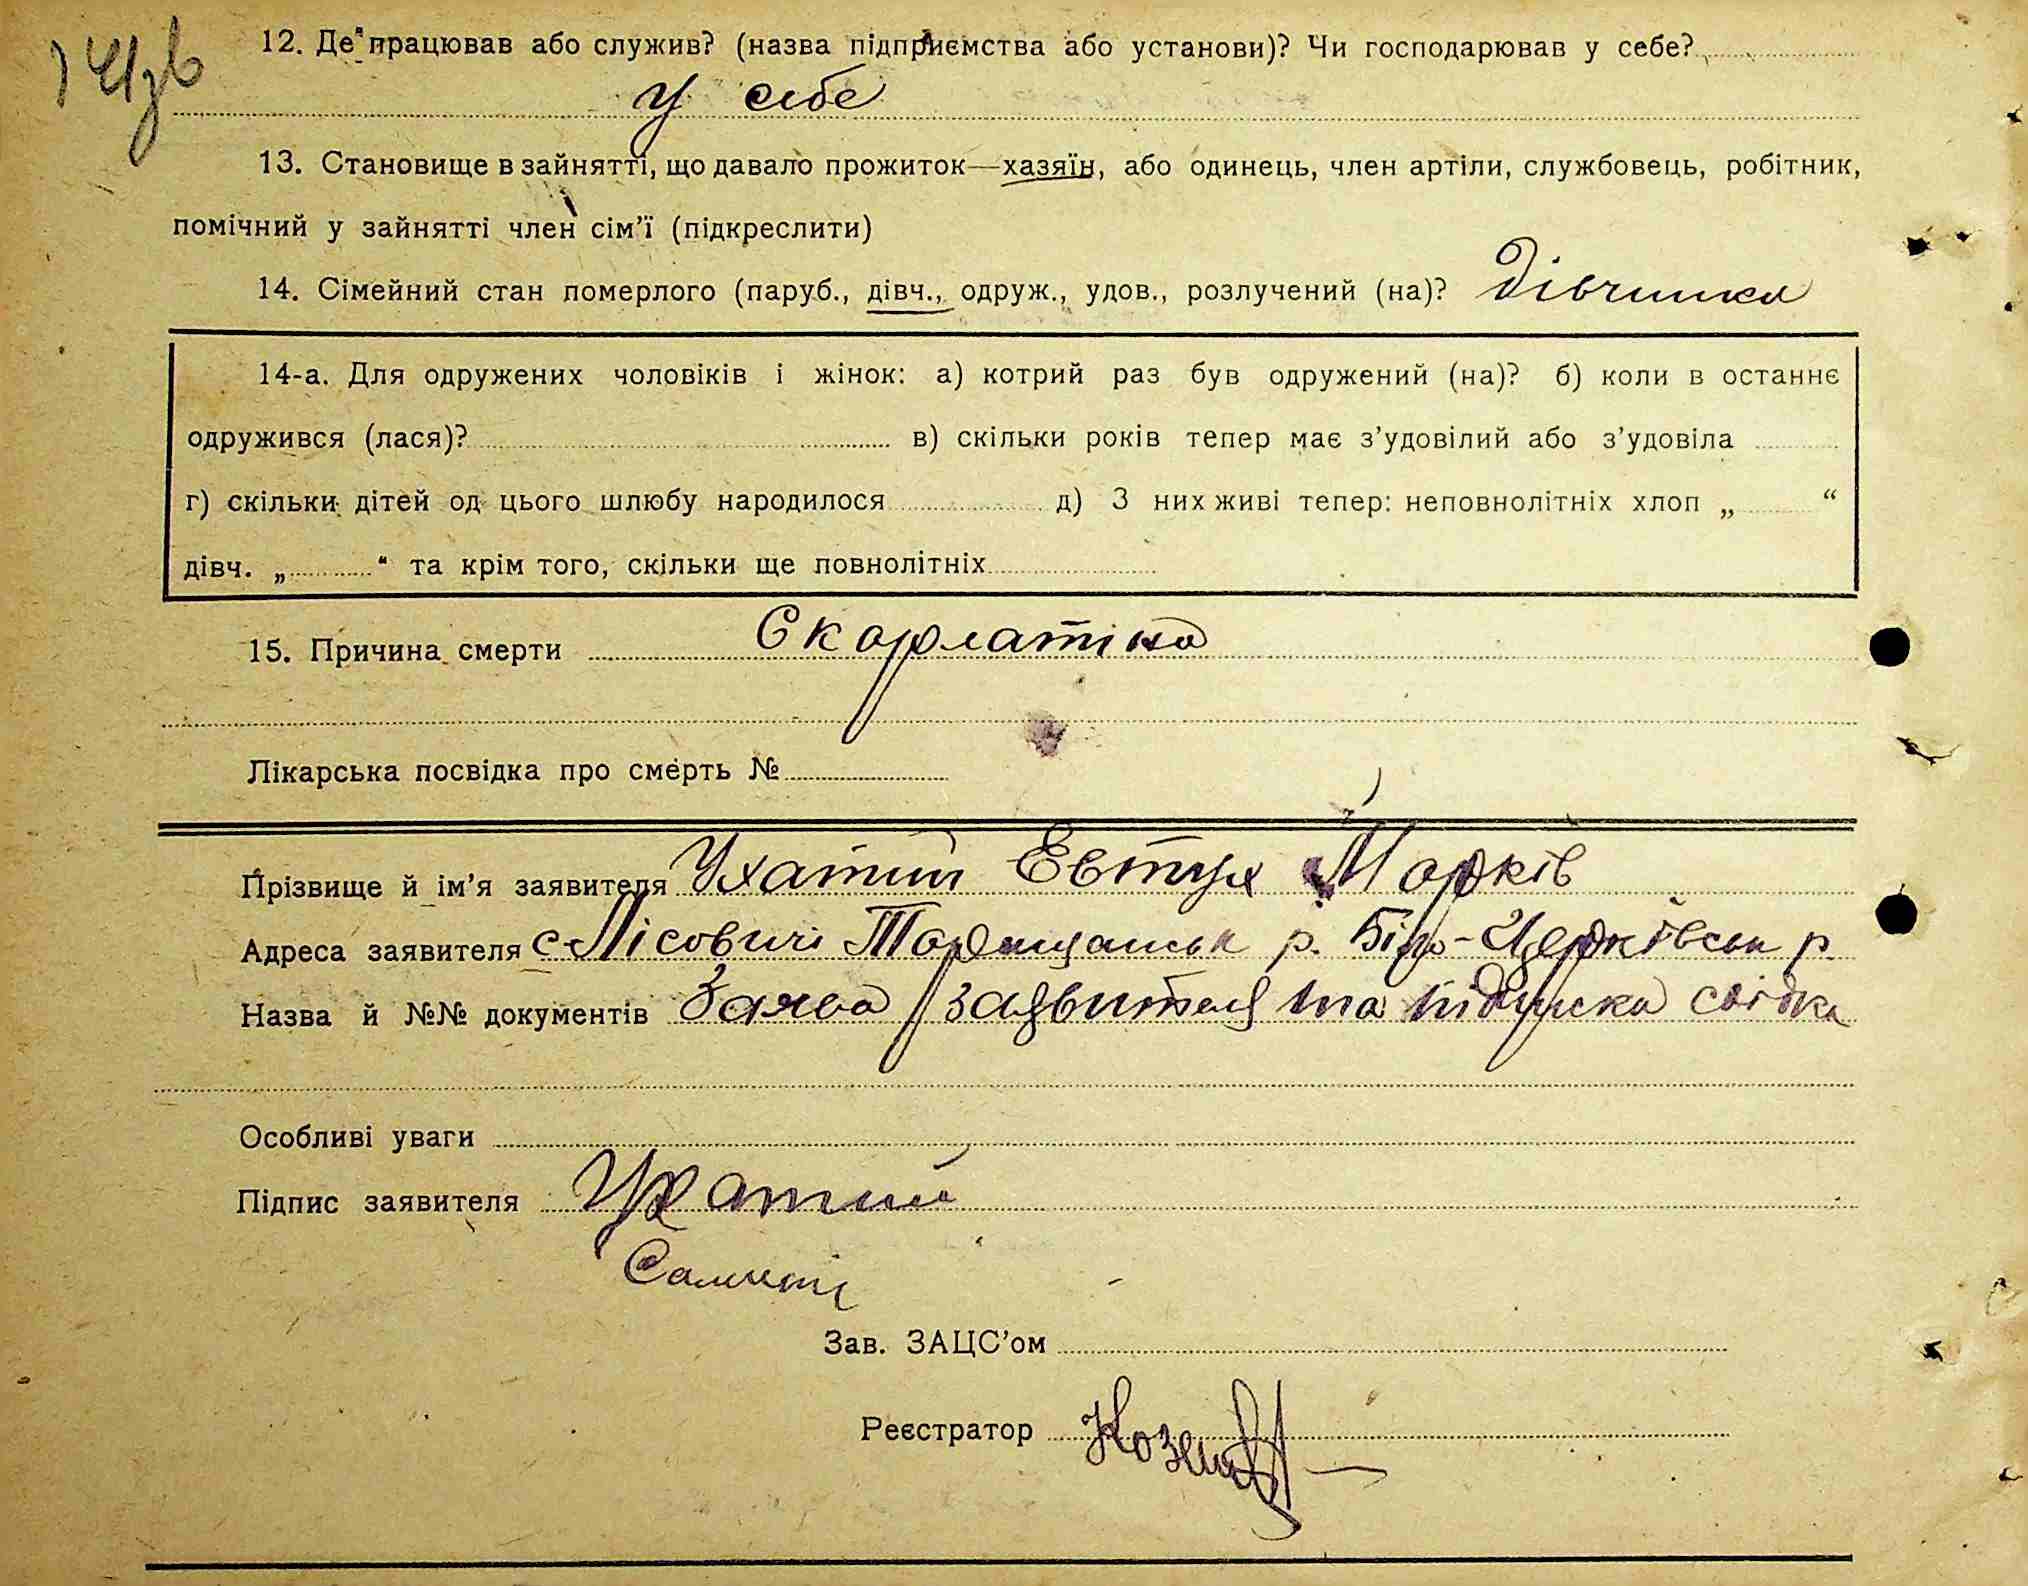 14зв
12. Де працював або служив? (назва підприємства або установи)? Чи господарював у себе?
У себе
13. Становище в зайнятті, що давало прожиток—хазяїн, або одинець, член артіли, службовець, робітник,
помічний у зайнятті член сім'ї (підкреслити)
14. Сімейний стан померлого (паруб., дівч., одруж., удов., розлучений (на)? Дівчинка
14-а. Для одружених чоловіків і жінок: а) котрий раз був одружений (на)? б) коли в останнє
одружився (лася)? в) скільки років тепер має з'удовілий або з'удовіла
г) скільки дітей од цього шлюбу народилося д) З них живі тепер: неповнолітніх хлоп „ “
дівч. „ “ та крім того, скільки ще повнолітніх
15. Причина смерти Скорлатіна
Лікарська посвідка про смерть №
Прізвище й ім'я заявителя Ухатий Евтух Марків
Адреса заявителя с Лісовичі Таращанськ р. Біло-Церківськ р.
Назва й №№ документів Заява заявителя та підписка свідка
Особливі уваги
Підпис заявителя Ухатий
Зав. ЗАЦС'ом
Реєстратор